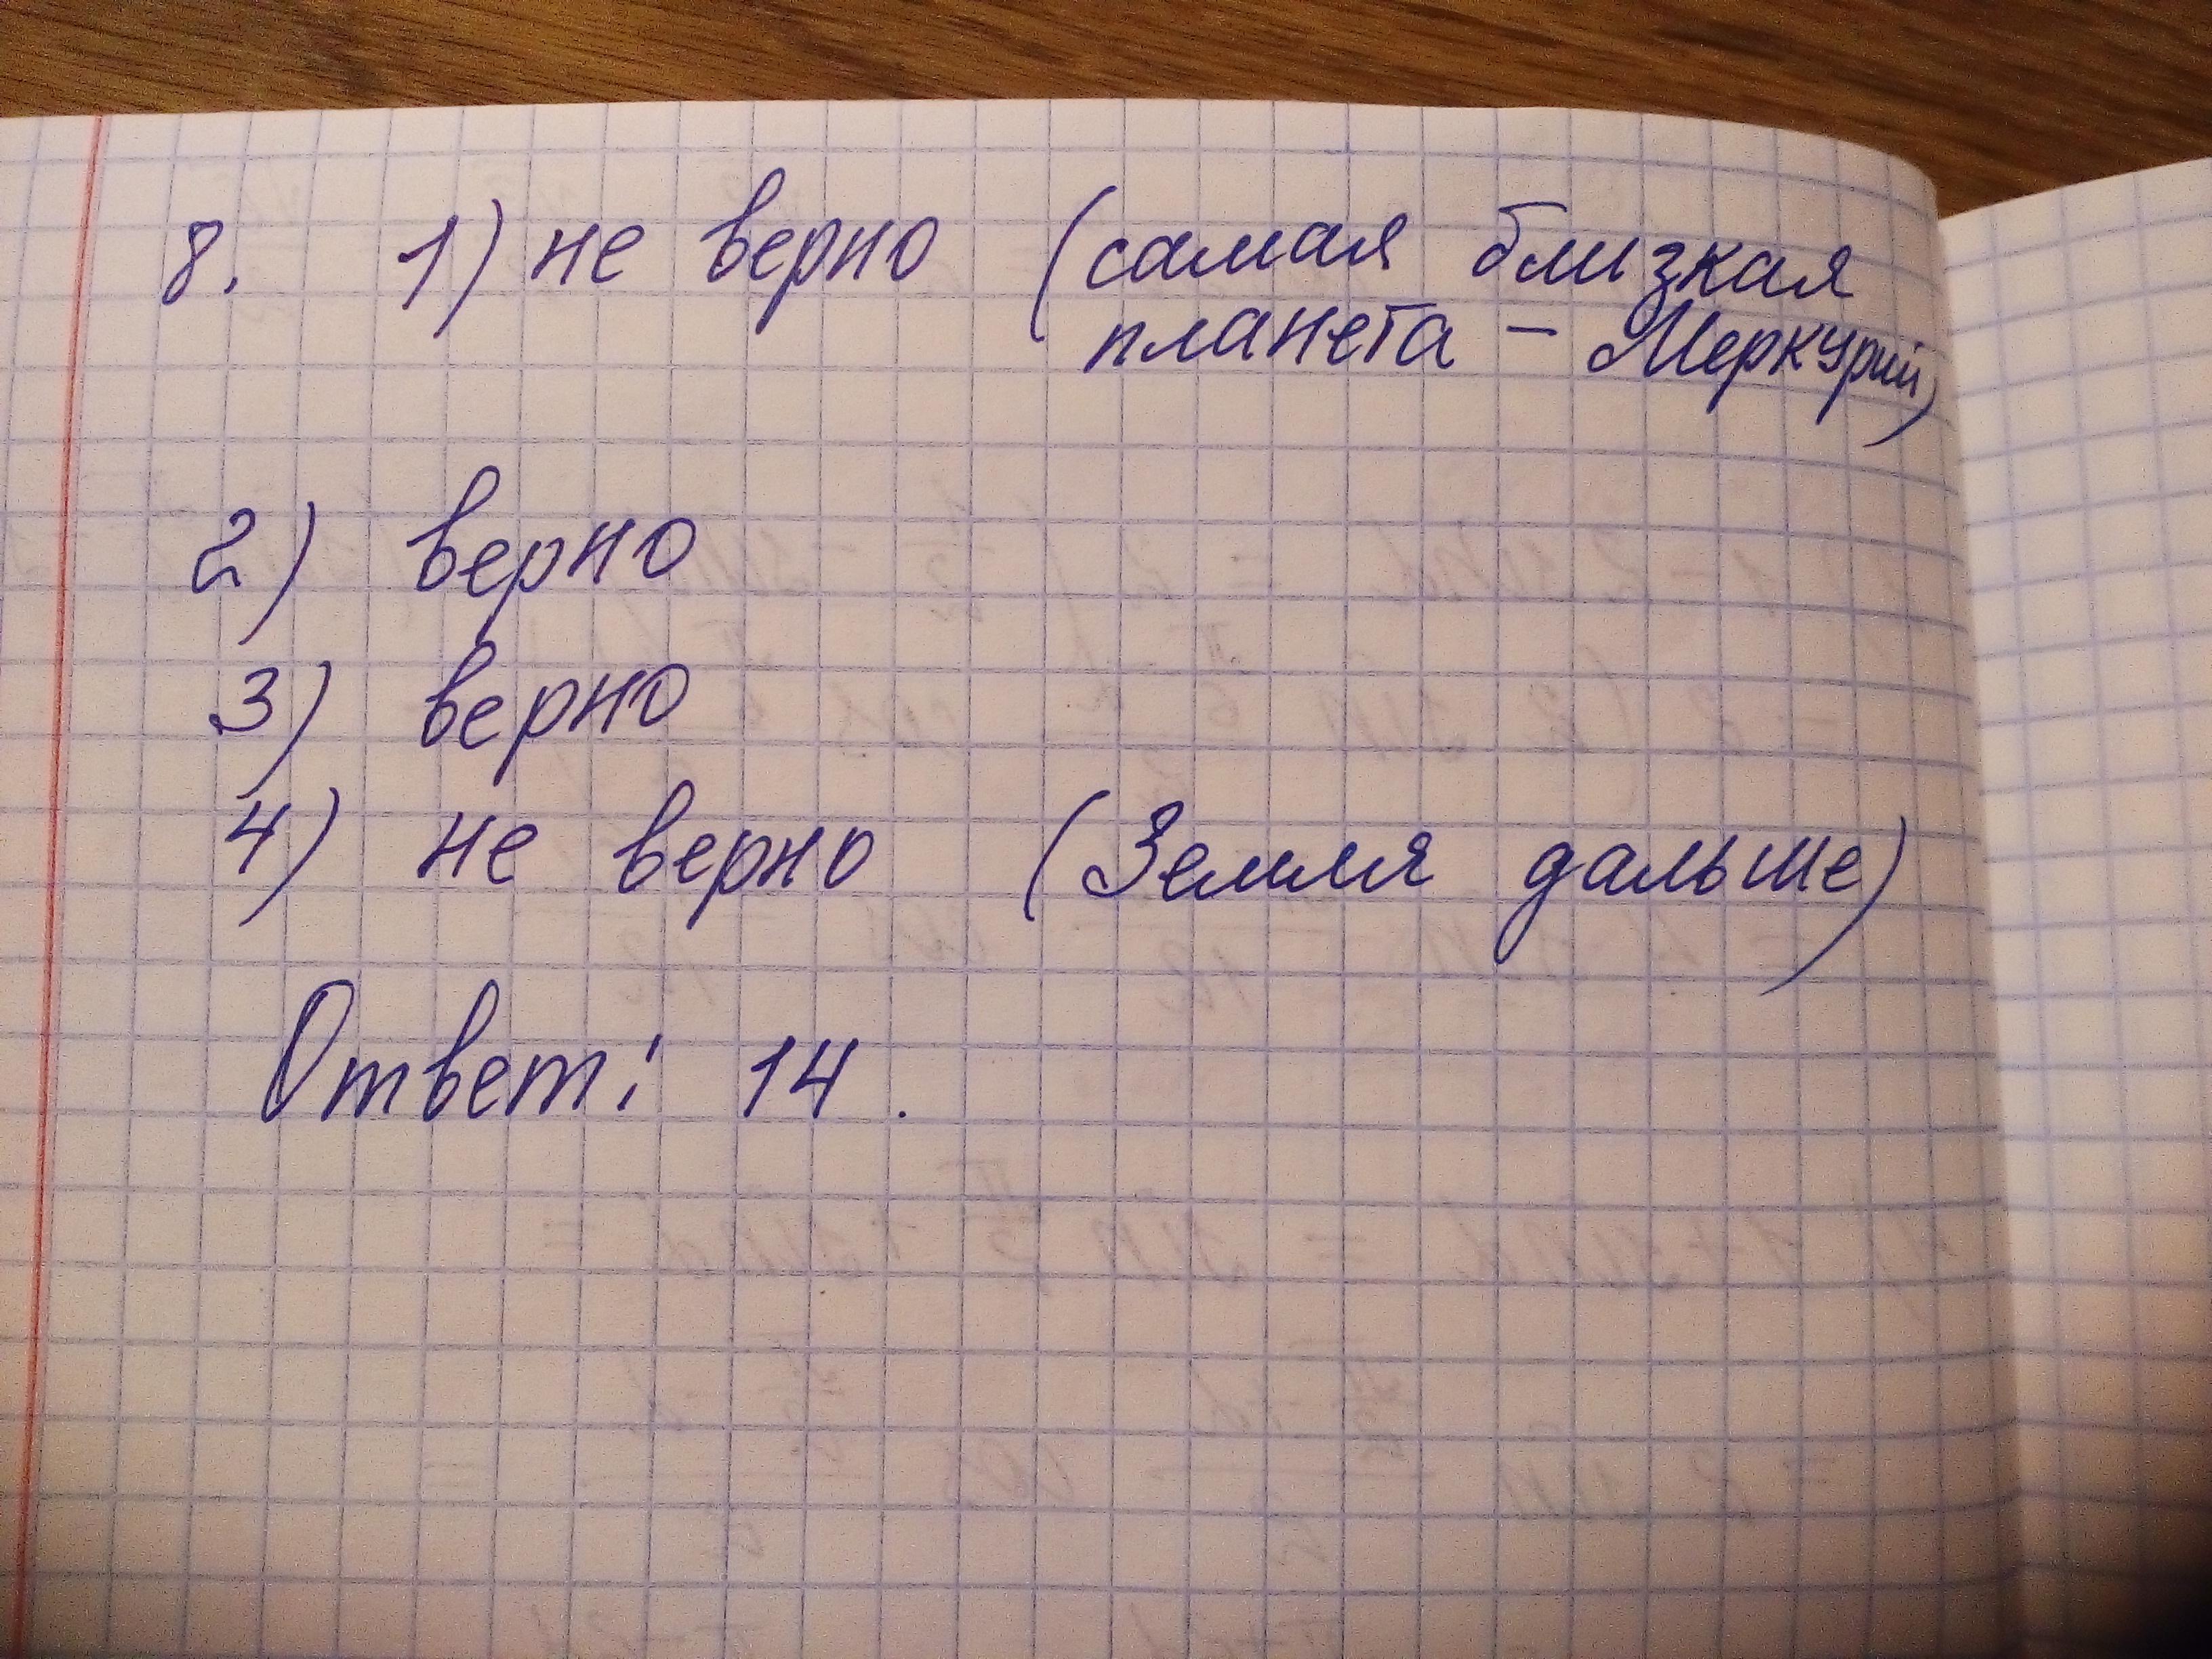 8. 1) не верно (самая близкая
планета – Меркурий)
2) верно
3) верно
4) не верно (Земля дальше)
Ответ: 14.